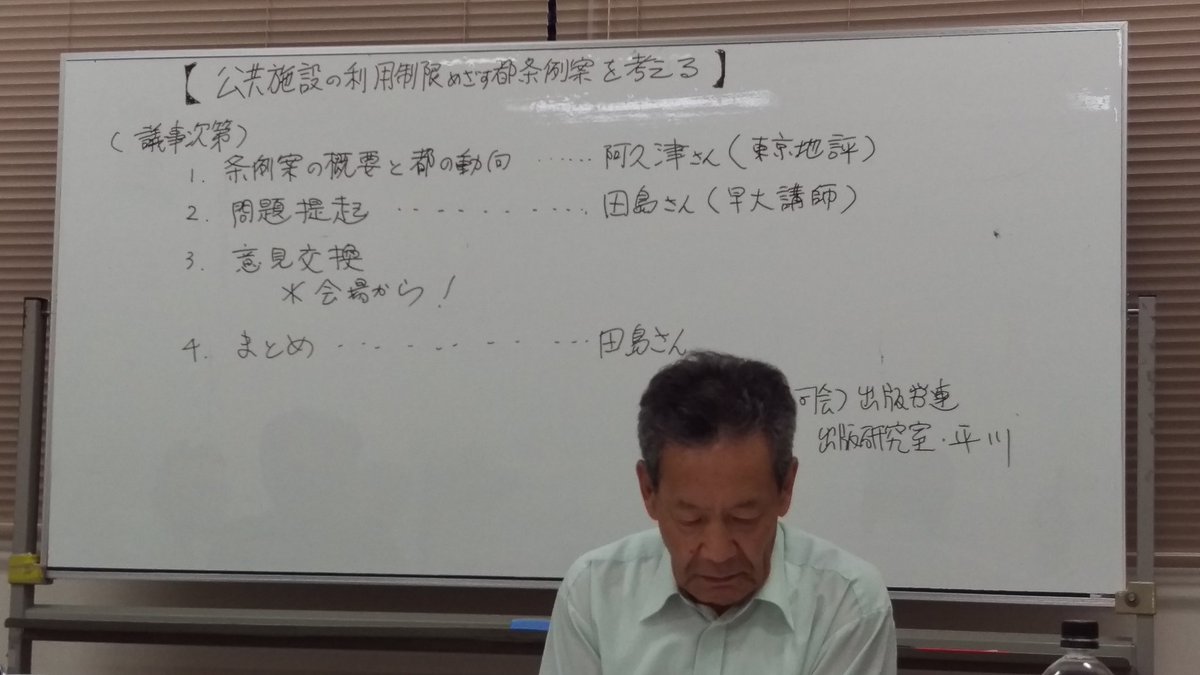 【公共施設の利用制限めざす都条例案を考える】
(議事次第)
1. 条例案の概要と都の動向 ...... 阿久津さん(東京地評)
2. 問題提起 ......... 田島さん(早大講師)
3. 意見交換
※会場から!
4. まとめ ......... 田島さん
司会)出版労連
出版研究室・平川